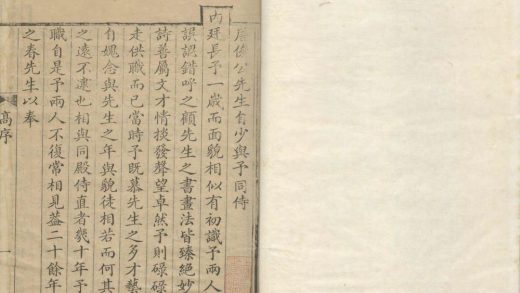 唐俊公先生自少與予同侍
內廷長予一歲而面貌相似有初識予兩人
誤認錯呼之顧先生之書畫法皆臻絕妙
詩善屬文才情掞發聲望卓然予則碌碌
走供職而已當時予既慕先生之多才藝
自媿念與先生之年與貌徒相若而何其
之遠不逮也相與同殿侍直者幾十年予
職自是予兩人不復常相見葢二十餘年
之眷先生以奉
高序
一